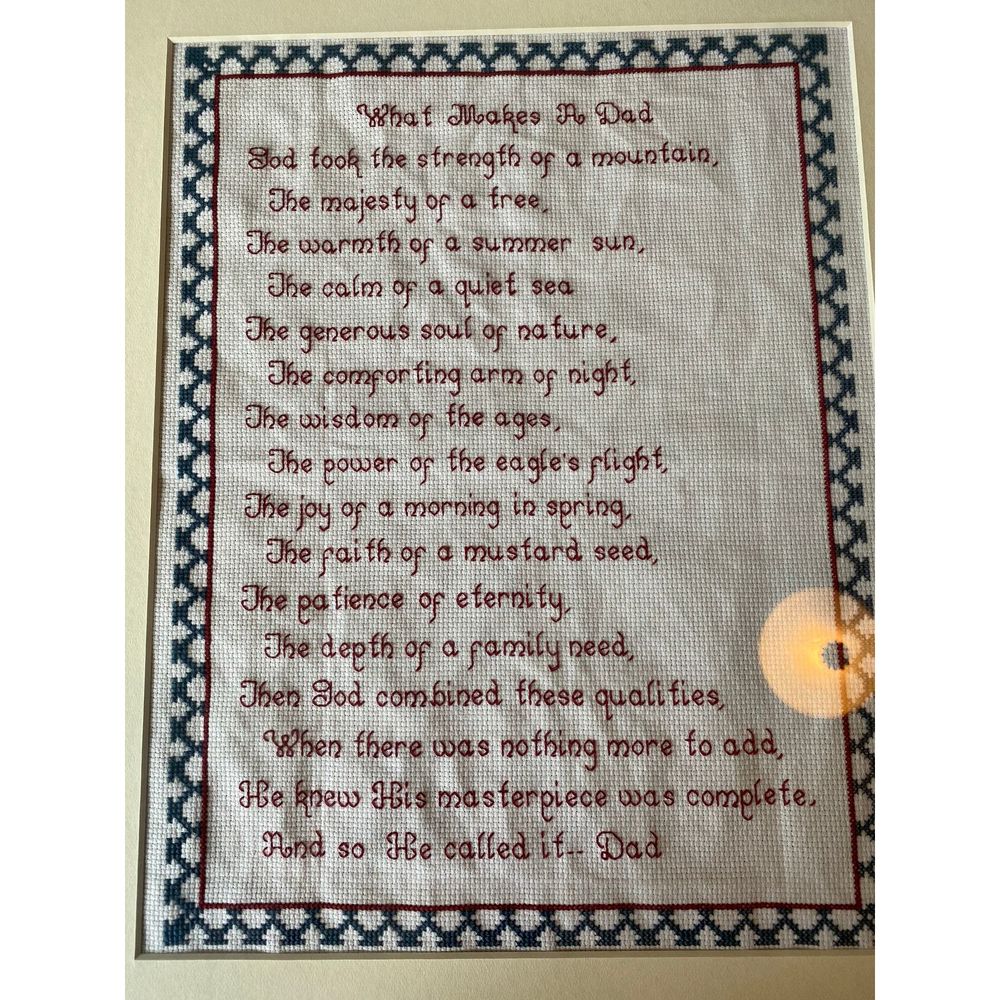 What Makes A Dad
God took the strength of a mountain,
The majesty of a tree,
The warmth of a summer sun,
The calm of a quiet sea
The generous soul of nature,
The comforting arm of night,
The wisdom of the ages,
The power of the eagle's flight,
The joy of a morning in spring,
The faith of a mustard seed,
The patience of eternity,
The depth of a family need,
Then God combined these qualities,
When there was nothing more to add,
He knew His masterpiece was complete,
And so He called it-- Dad